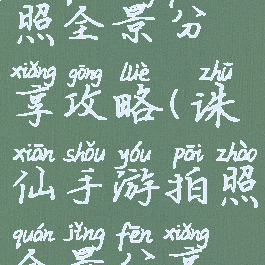 照全景分
xiǎng gōng lüè zhū
享攻略(诛
xiān shǒu yóu pāi zhào
仙手游拍照
quán jǐng fēn xiǎng
全景分享